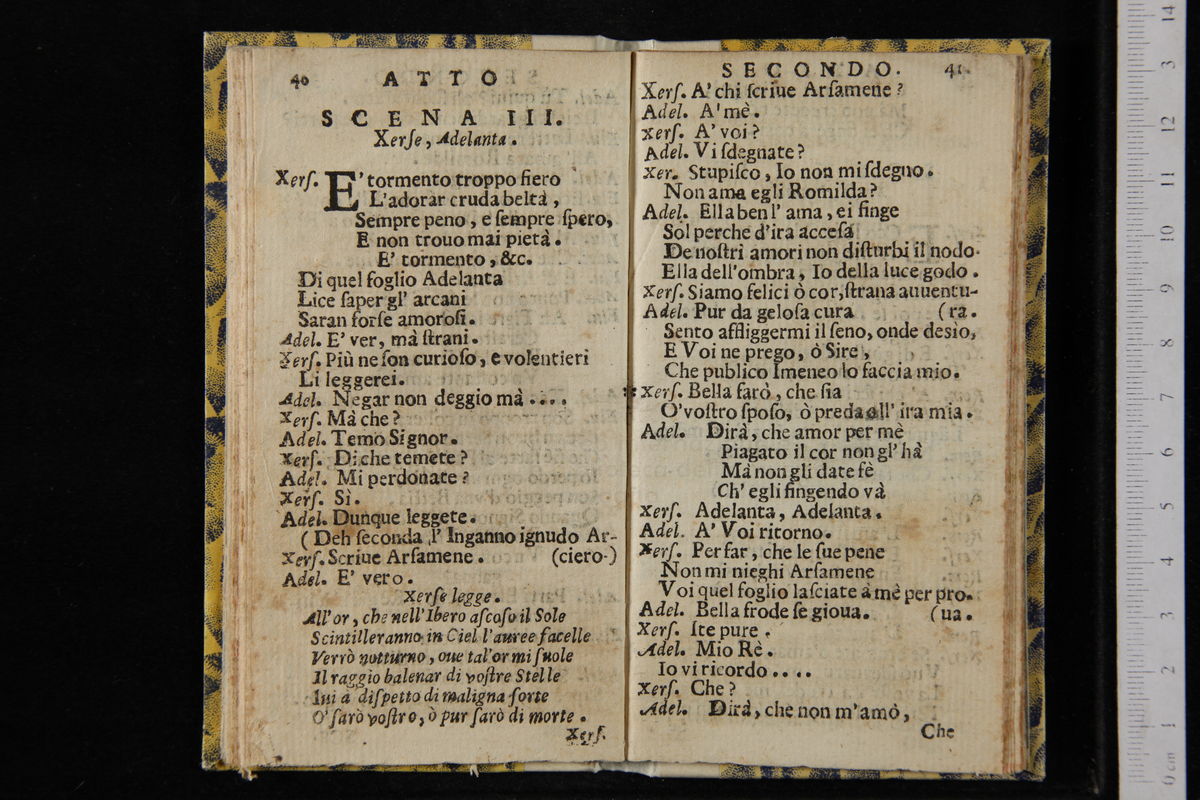 40 ATTO
SCENA III.
Xerſe, Adelanta.
Xerſ. E' tormento troppo fiero
L'adorar cruda beltà,
Sempre peno, e ſempre ſpero,
E non trouo mai pietà.
E' tormento, &c.
Di quel foglio Adelanta
Lice ſaper gl' arcani
Saran forſe amoroſi.
Adel. E' ver, mà ſtrani.
Xerſ. Più ne ſon curioſo, e volentieri
Li leggerei.
Adel. Negar non deggio mà ....
Xerſ. Mà che?
Adel. Temo Signor.
Xerſ. Di che temete?
Adel. Mi perdonate?
Xerſ. Sì.
Adel. Dunque leggete.
(Deh ſeconda l' Inganno ignudo Ar-
Xerſ. Scriue Arſamene. (ciero.)
Adel. E' vero.
Xerſe legge.
All'or, che nell'Ibero aſcoſo il Sole
Scintilleranno in Ciel l'auree facelle
Verrò notturno, oue tal'or mi ſuole
Il raggio balenar di voſtre Stelle
Iui a diſpetto di maligna ſorte
O' ſarò voſtro, ò pur ſarò di morte.
Xerſ.
SECONDO. 41
Xerſ. A' chi ſcriue Arſamene?
Adel. A' mè.
Xerſ. A' voi?
Adel. Vi ſdegnate?
Xer. Stupiſco, Io non mi ſdegno.
Non ama egli Romilda?
Adel. Ella ben l' ama, ei finge
Sol perche d'ira acceſa
De noſtri amori non diſturbi il nodo.
Ella dell'ombra, Io della luce godo.
Xerſ. Siamo felici ò cor, ſtrana auuentu-
Adel. Pur da geloſa cura (ra.
Sento affliggermi il ſeno, onde deſio,
E Voi ne prego, ò Sire,
Che publico Imeneo lo faccia mio.
* Xerſ. Bella farò, che ſia
O' voſtro ſpoſo, ò preda all' ira mia.
Adel. Dirà, che amor per mè
Piagato il cor non gl' hà
Mà non gli date fè
Ch' egli fingendo và
Xerſ. Adelanta, Adelanta.
Adel. A' Voi ritorno.
Xerſ. Per far, che le ſue pene
Non mi nieghi Arſamene
Voi quel foglio laſciate à mè per pro.
Adel. Bella frode ſe gioua. (ua.
Xerſ. Ite pure.
Adel. Mio Rè.
Io vi ricordo ....
Xerſ. Che?
Adel. Dirà, che non m'amò,
Che
14
13
12
11
10
9
8
7
6
5
4
3
2
1
0 cm